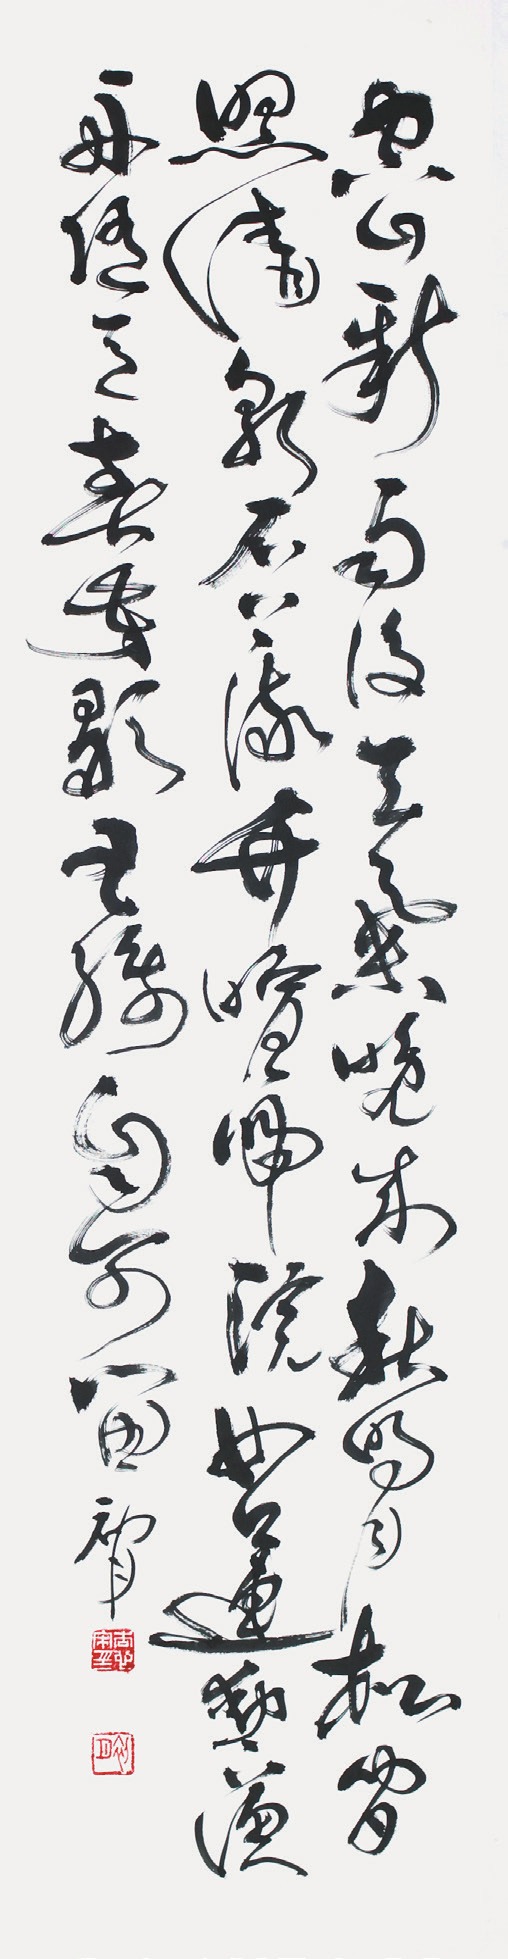 空山新雨後天氣晚來秋明月松間
照清泉石上流竹喧歸浣女蓮動下漁
舟隨意春芳歇王孫自可留